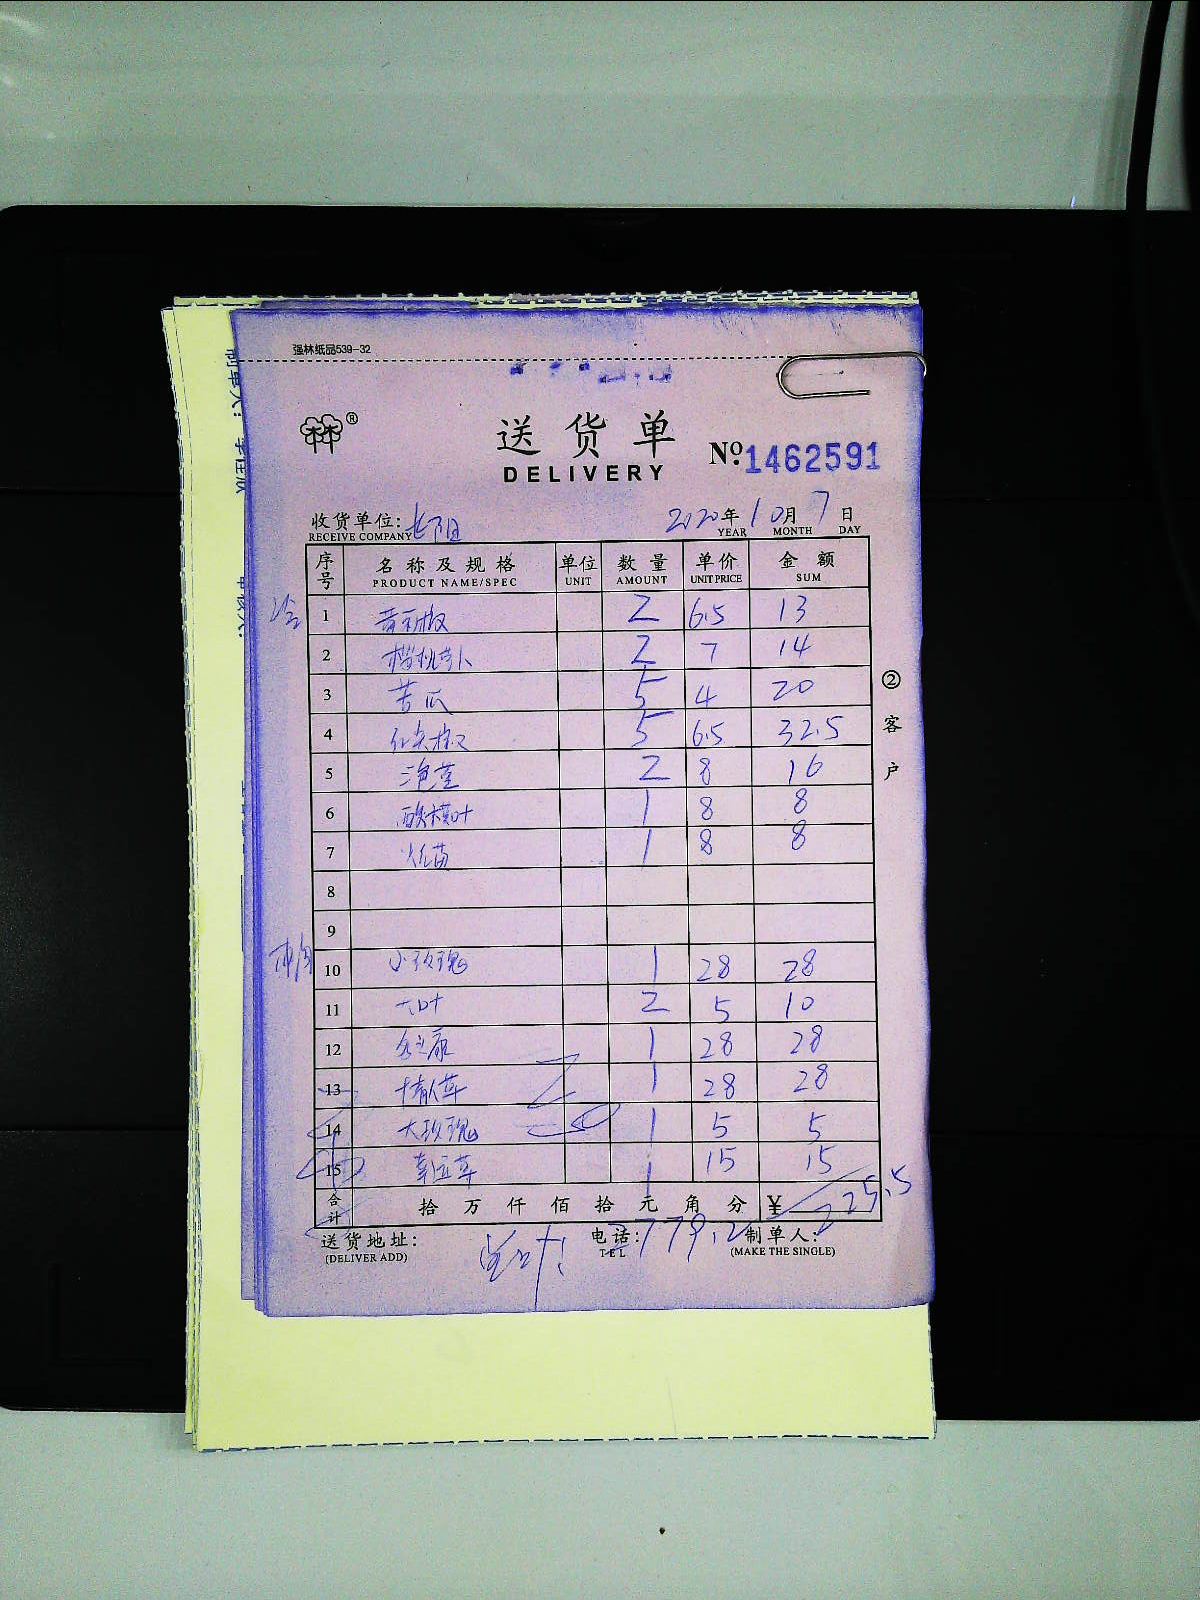 强林纸品539-32
送货单
DELIVERY
№ 1462591
收货单位: 长阳 2020年10月7日
RECEIVE COMPANY YEAR MONTH DAY
序号 名称及规格 单位 数量 单价 金额
PRODUCT NAME/SPEC UNIT AMOUNT UNIT PRICE SUM
1 2 6.5 13
2 樱桃萝卜 2 7 14
3 苦瓜 5 4 20
4 5 6.5 32.5
5 2 8 16
6 酸模叶 1 8 8
7 苗 1 8 8
8
9
10 小玫瑰 1 28 28
11 叶 2 5 10
12 1 28 28
13 情人草 1 28 28
14 大玫瑰 1 5 5
15 草 1 15 15
合计 拾万仟佰拾元角分 ¥ 225.5
送货地址: 电话: 779.2 制单人:
(DELIVER ADD) TEL (MAKE THE SINGLE)
②客户